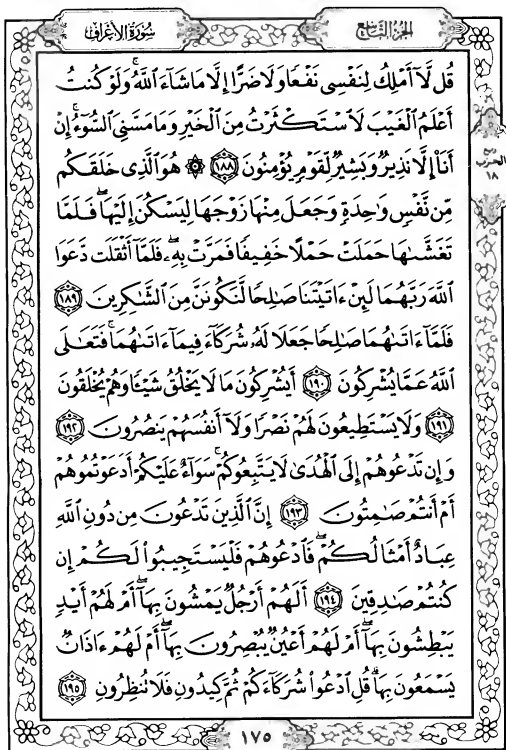 سُورَةُ الأَعْرَافِ
الجُزْءُ التَّاسِعُ
قُل لَّآ أَمْلِكُ لِنَفْسِى نَفْعًا وَلَا ضَرًّا إِلَّا مَا شَآءَ ٱللَّهُ ۚ وَلَوْ كُنتُ
أَعْلَمُ ٱلْغَيْبَ لَٱسْتَكْثَرْتُ مِنَ ٱلْخَيْرِ وَمَا مَسَّنِىَ ٱلسُّوٓءُ ۚ إِنْ
أَنَا۠ إِلَّا نَذِيرٌ وَبَشِيرٌ لِّقَوْمٍ يُؤْمِنُونَ ﴿١٨٨﴾ ۞ هُوَ ٱلَّذِى خَلَقَكُم
مِّن نَّفْسٍ وَٰحِدَةٍ وَجَعَلَ مِنْهَا زَوْجَهَا لِيَسْكُنَ إِلَيْهَا ۖ فَلَمَّا
تَغَشَّىٰهَا حَمَلَتْ حَمْلًا خَفِيفًا فَمَرَّتْ بِهِۦ ۖ فَلَمَّآ أَثْقَلَت دَّعَوَا
ٱللَّهَ رَبَّهُمَا لَئِنْ ءَاتَيْتَنَا صَٰلِحًا لَّنَكُونَنَّ مِنَ ٱلشَّٰكِرِينَ ﴿١٨٩﴾
فَلَمَّآ ءَاتَىٰهُمَا صَٰلِحًا جَعَلَا لَهُۥ شُرَكَآءَ فِيمَآ ءَاتَىٰهُمَا ۚ فَتَعَٰلَى
ٱللَّهُ عَمَّا يُشْرِكُونَ ﴿١٩٠﴾ أَيُشْرِكُونَ مَا لَا يَخْلُقُ شَيْـًٔا وَهُمْ يُخْلَقُونَ
﴿١٩١﴾ وَلَا يَسْتَطِيعُونَ لَهُمْ نَصْرًا وَلَآ أَنفُسَهُمْ يَنصُرُونَ ﴿١٩٢﴾
وَإِن تَدْعُوهُمْ إِلَى ٱلْهُدَىٰ لَا يَتَّبِعُوكُمْ ۚ سَوَآءٌ عَلَيْكُمْ أَدَعَوْتُمُوهُمْ
أَمْ أَنتُمْ صَٰمِتُونَ ﴿١٩٣﴾ إِنَّ ٱلَّذِينَ تَدْعُونَ مِن دُونِ ٱللَّهِ
عِبَادٌ أَمْثَالُكُمْ ۖ فَٱدْعُوهُمْ فَلْيَسْتَجِيبُوا۟ لَكُمْ إِن
كُنتُمْ صَٰدِقِينَ ﴿١٩٤﴾ أَلَهُمْ أَرْجُلٌ يَمْشُونَ بِهَآ ۖ أَمْ لَهُمْ أَيْدٍ
يَبْطِشُونَ بِهَآ ۖ أَمْ لَهُمْ أَعْيُنٌ يُبْصِرُونَ بِهَآ ۖ أَمْ لَهُمْ ءَاذَانٌ
يَسْمَعُونَ بِهَا ۗ قُلِ ٱدْعُوا۟ شُرَكَآءَكُمْ ثُمَّ كِيدُونِ فَلَا تُنظِرُونِ ﴿١٩٥﴾
ربع
الحزب
١٨
١٧٥